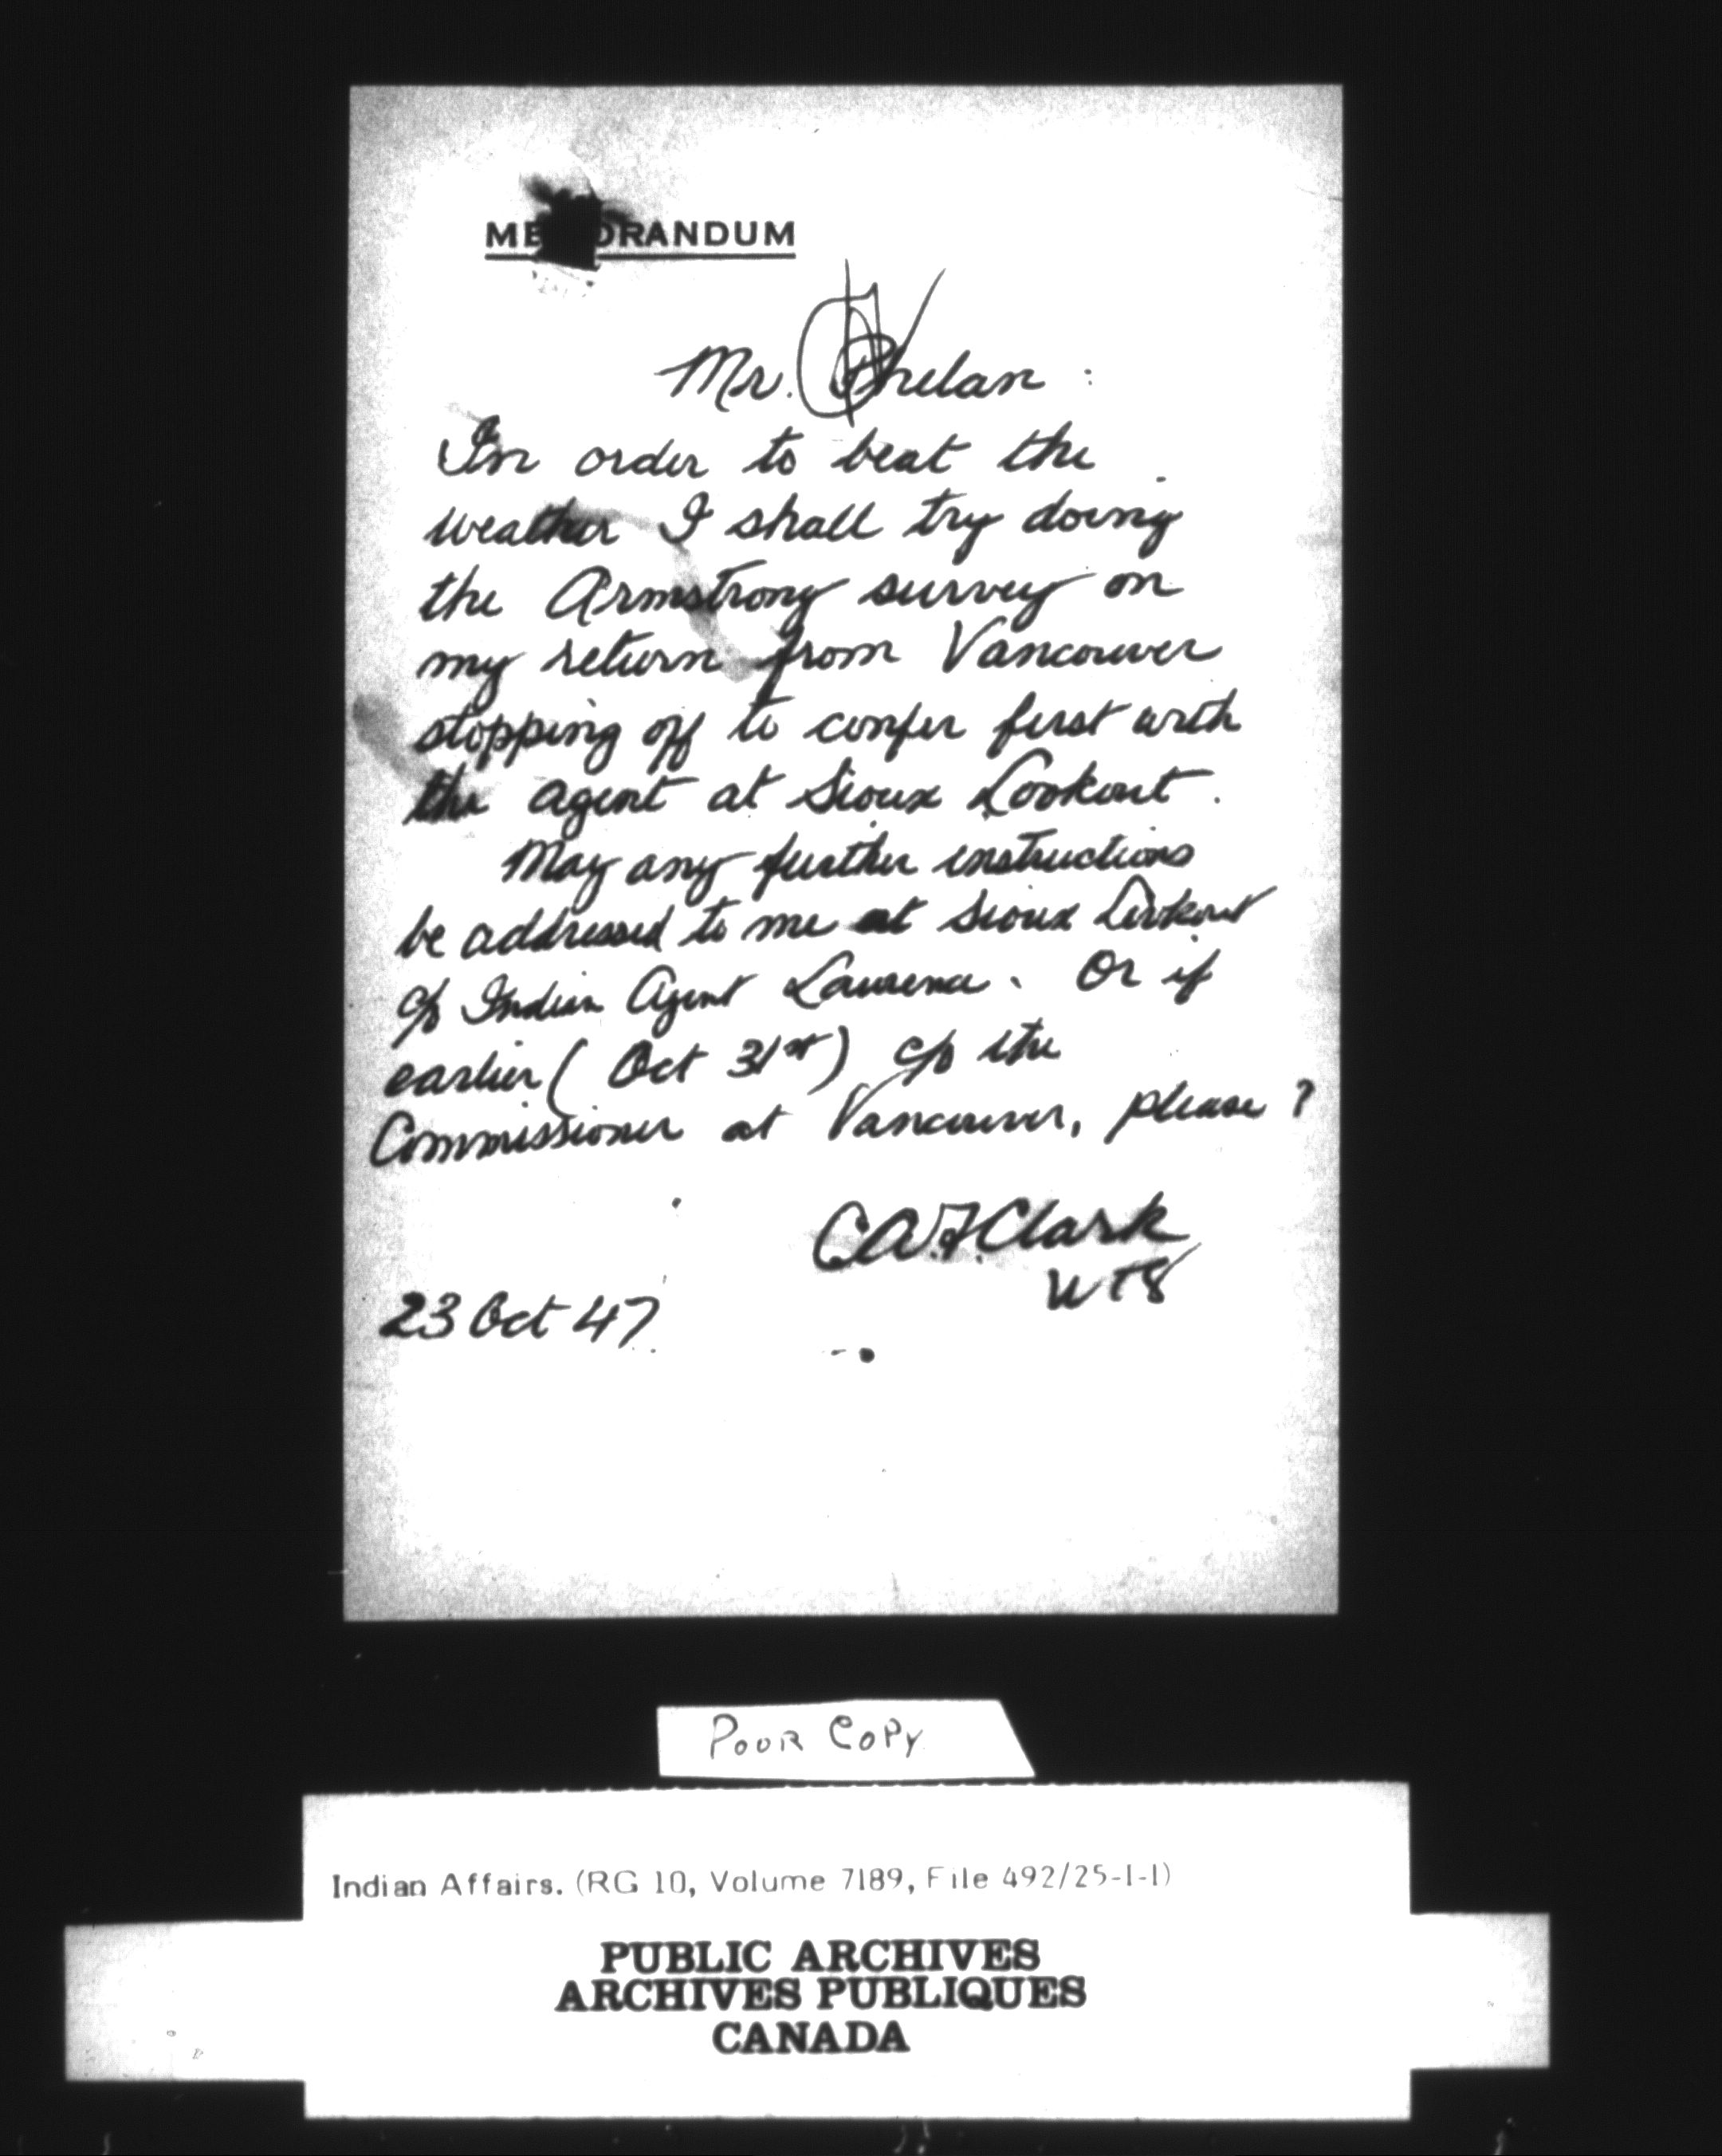 MEMORANDUM
Mr. Phelan :
In order to beat the
weather I shall try doing
the Armstrong survey on
my return from Vancouver
stopping off to confer first with
the agent at Sioux Lookout.
May any further instructions
be addressed to me at Sioux Lookout
c/o Indian Agent Laurence. Or if
earlier (Oct 31st) c/o the
Commissioner at Vancouver, please?
C.A.F. Clark
WTS
23 Oct 47
POOR COPY
Indian Affairs. (RG 10, Volume 7189, File 492/25-1-1)
PUBLIC ARCHIVES
ARCHIVES PUBLIQUES
CANADA